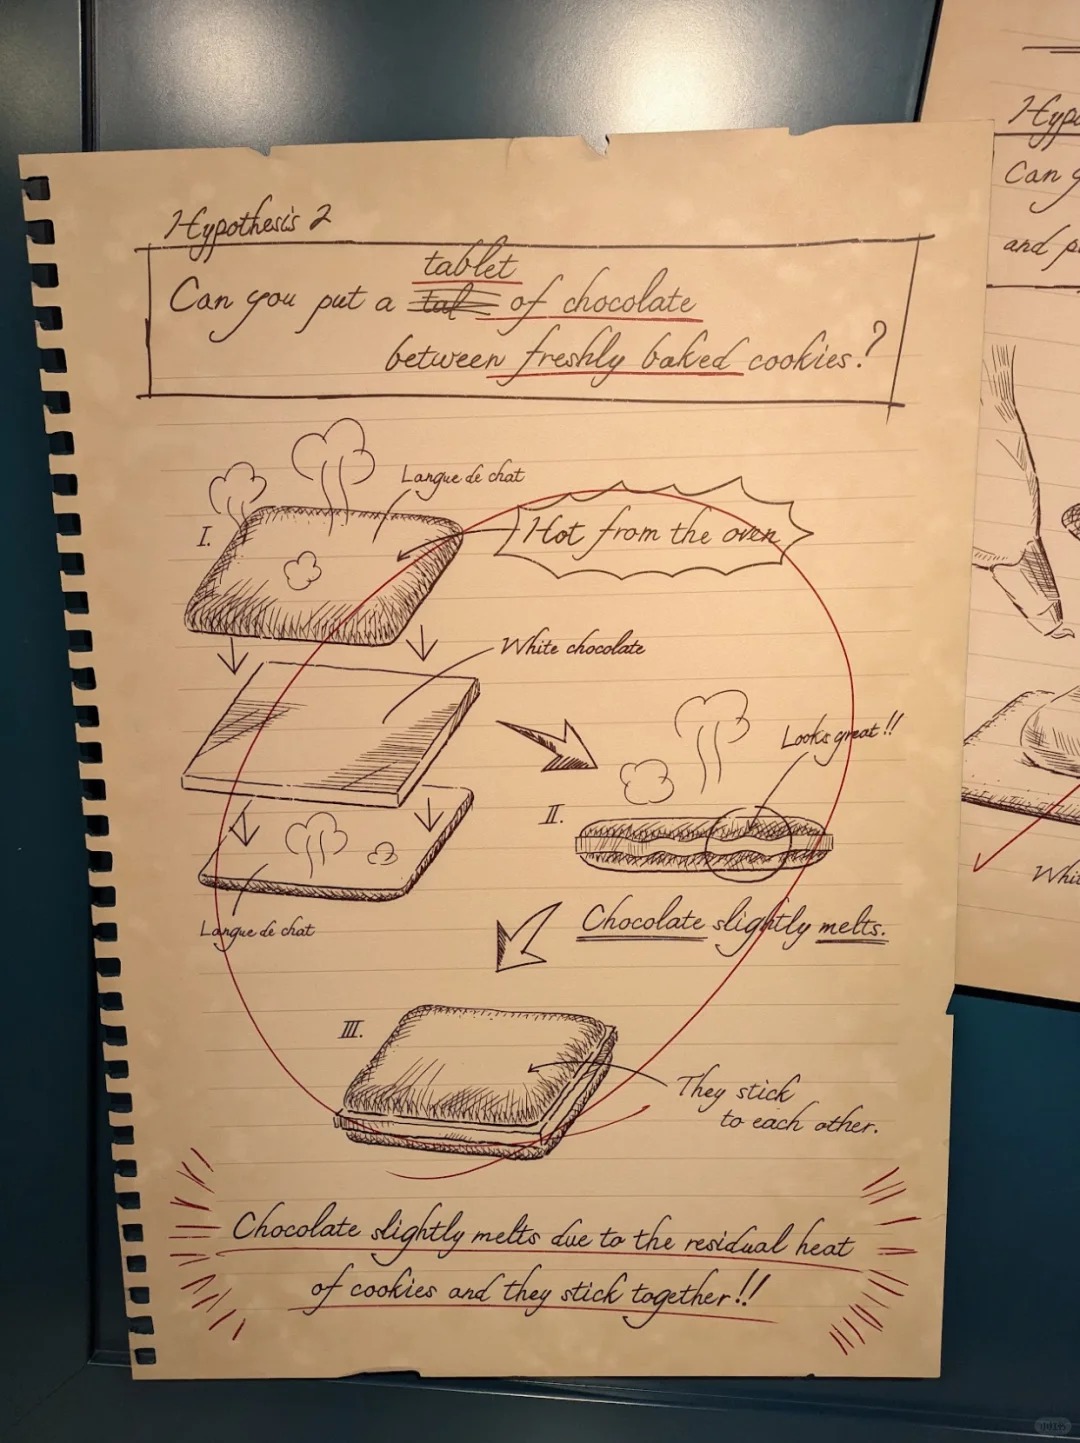 Hypothesis 2
tablet
Can you put a tal of chocolate
between freshly baked cookies?
Langue de chat
I.
Hot from the oven
White chocolate
Looks great!!
II.
Langue de chat
Chocolate slightly melts.
III.
They stick
to each other.
Chocolate slightly melts due to the residual heat
of cookies and they stick together!!
Can
and